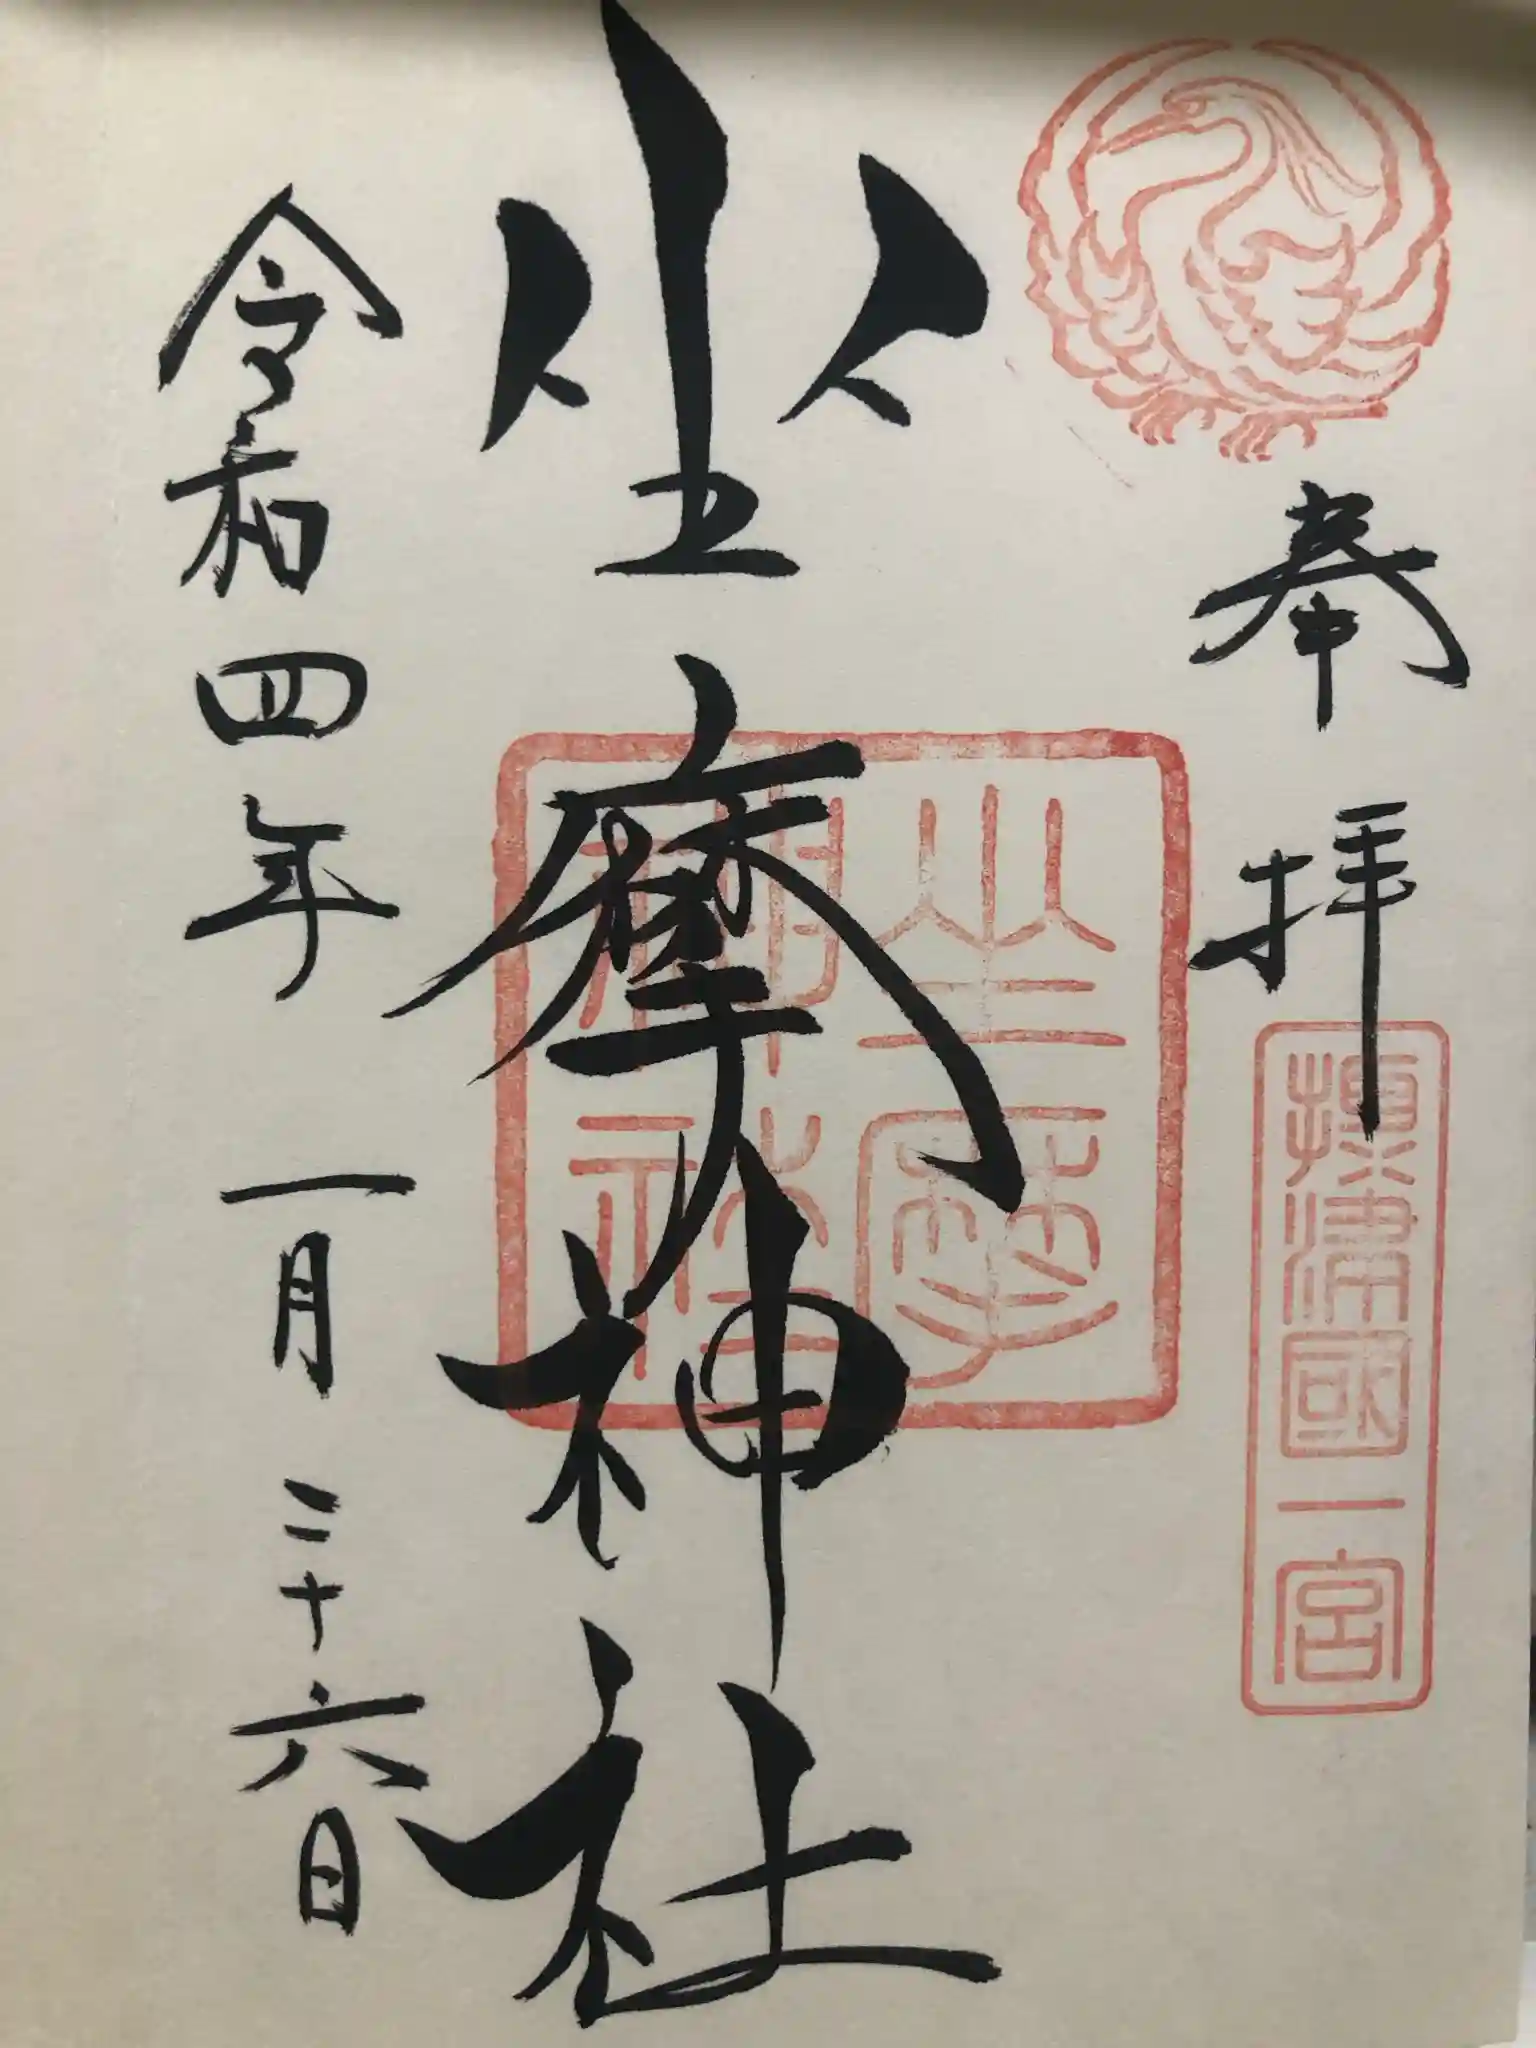 奉拝
摂津國一宮
坐摩神社
坐摩
神社
令和四年一月二十六日